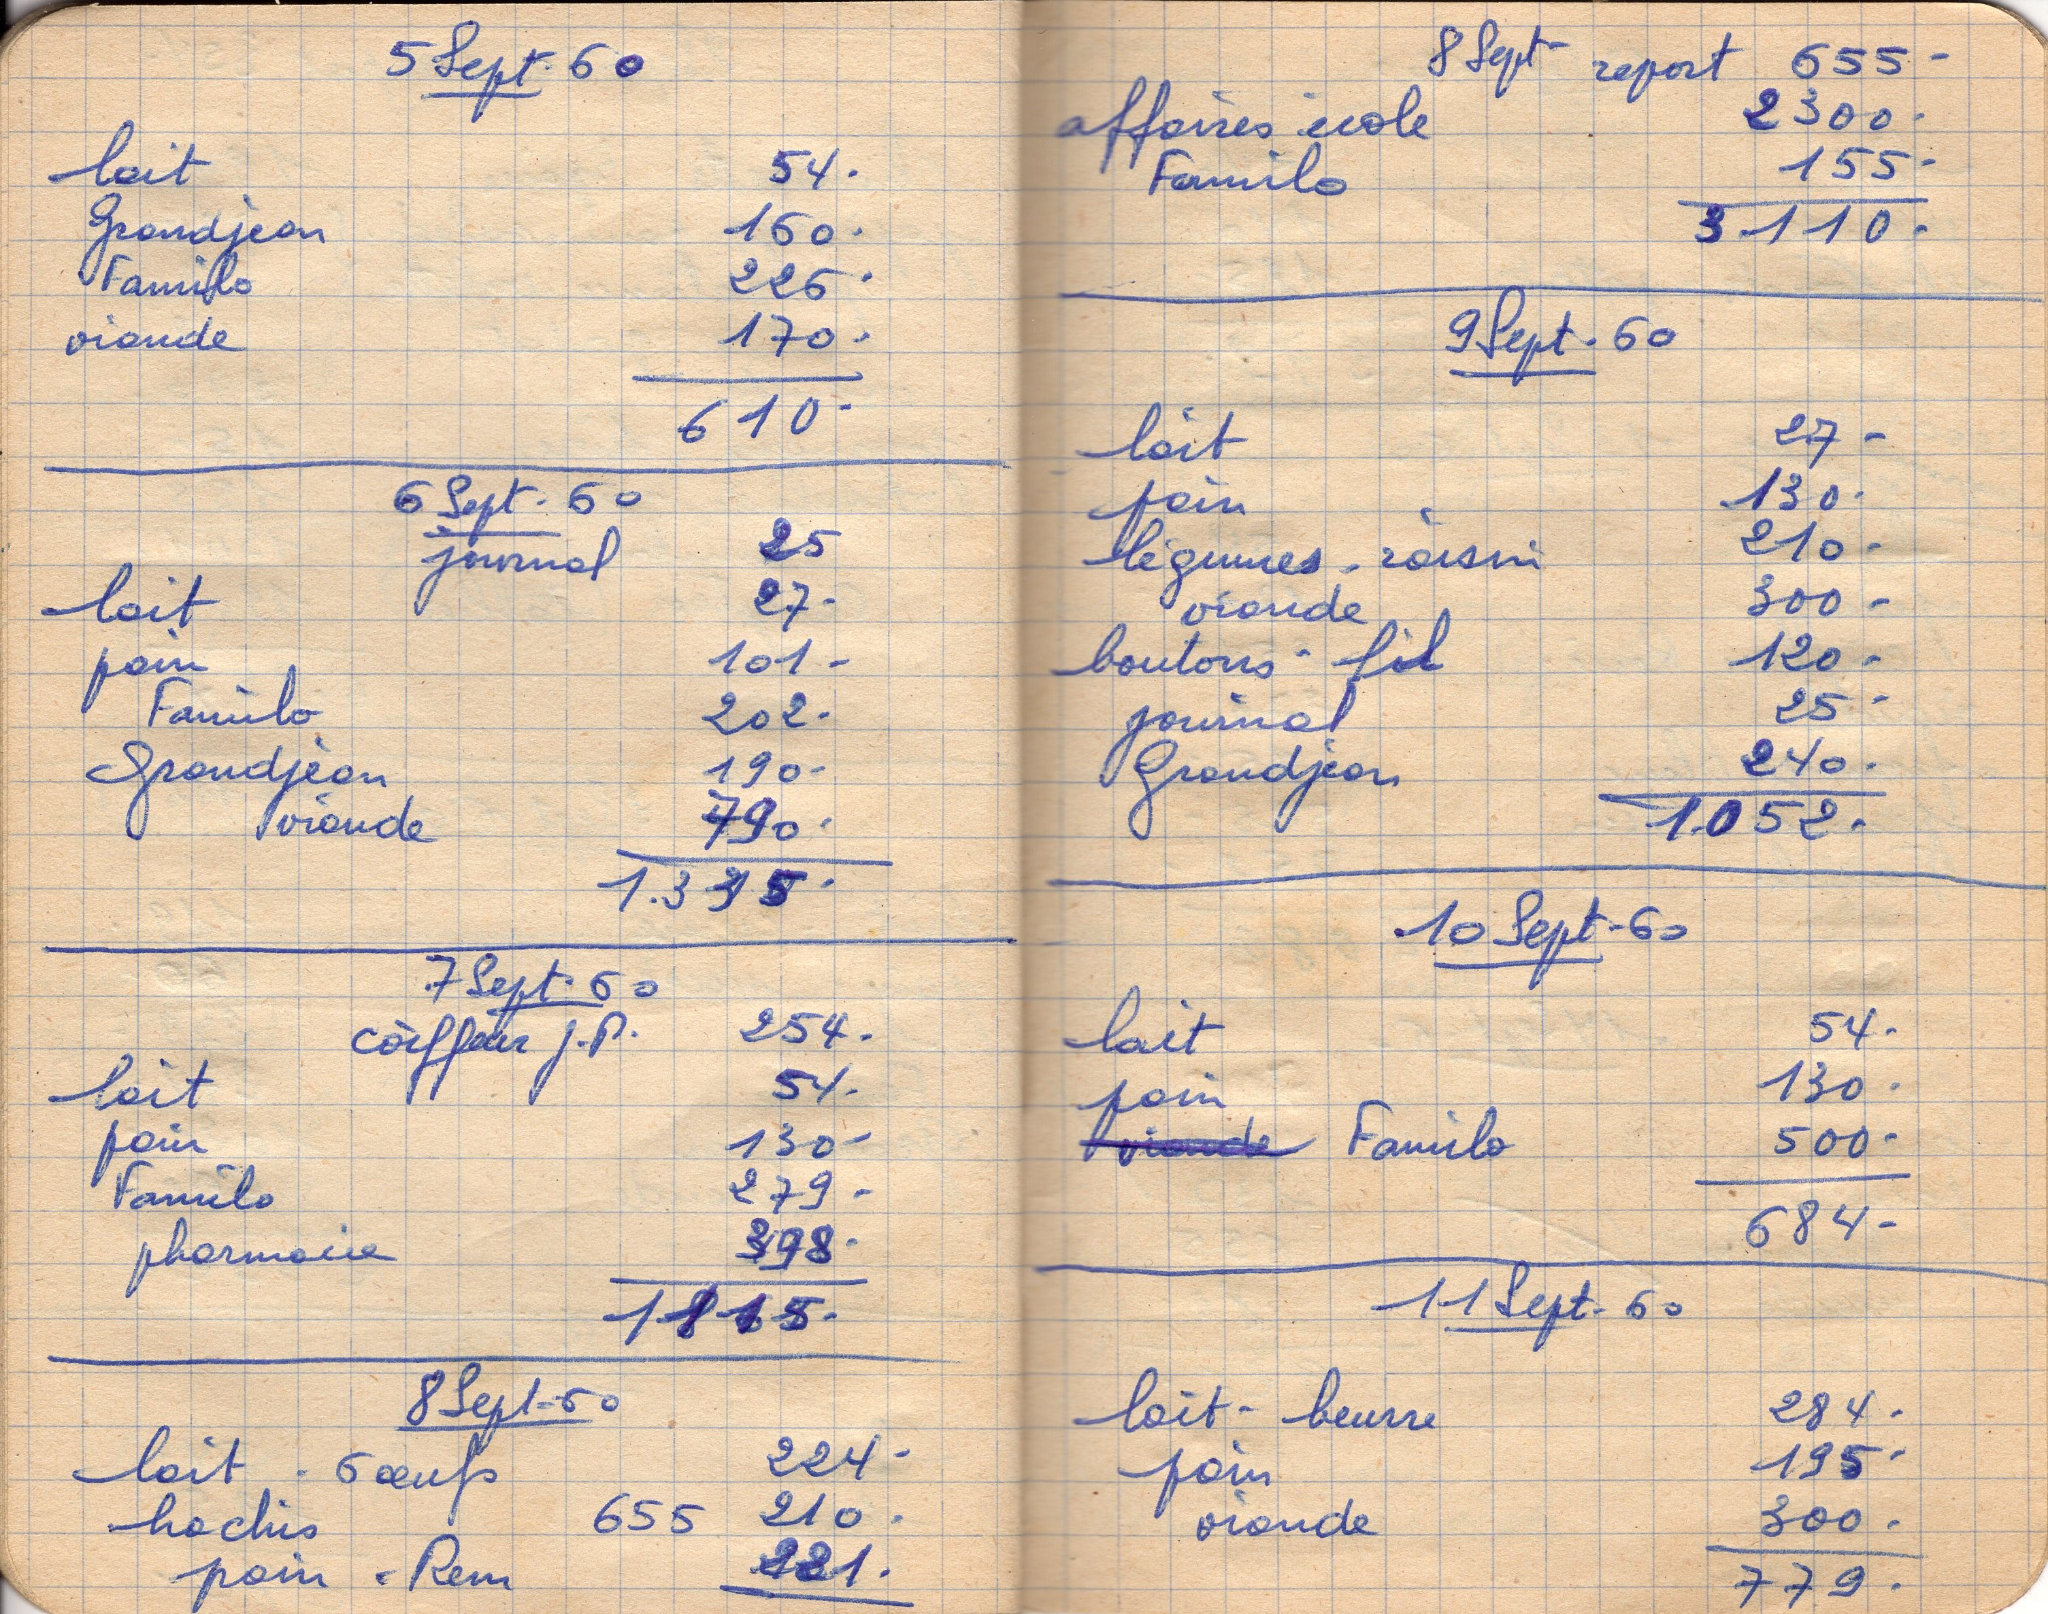 5 Sept. 60
lait 54.
Grandjean 160.
Familo 226.
viande 170.
610.
6 Sept. 60
journal 25
lait 27.
pain 101-
Familo 202.
Grandjean 190-
viande 790.
1.335.
7 Sept. 60
coiffeur J.P. 254.
lait 54.
pain 130-
Familo 279-
pharmacie 398.
1115.
8 Sept-60
lait - 6 œufs 224-
hachis 655 210.
pain - Rem 221.
8 Sept- report 655-
affaires école 2300.
Familo 155-
3.110.
9 Sept. 60
lait 27-
pain 130.
légumes - raisin 210-
viande 300-
boutons - fil 120.
journal 25-
Grandjean 240.
1.052.
10 Sept-60
lait 54.
pain 130.
Familo 500-
684-
11 Sept-60
lait - beurre 284.
pain 195.
viande 300.
779.